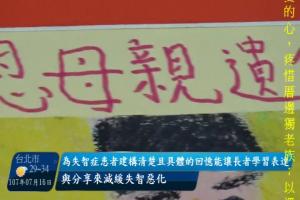 恩母親遺
愛的心,疼惜厝邊獨老族:以復
台北市
29-34
107年07月16日
為失智症患者建構清楚且具體的回憶能讓長者學習表達
與分享來減緩失智惡化